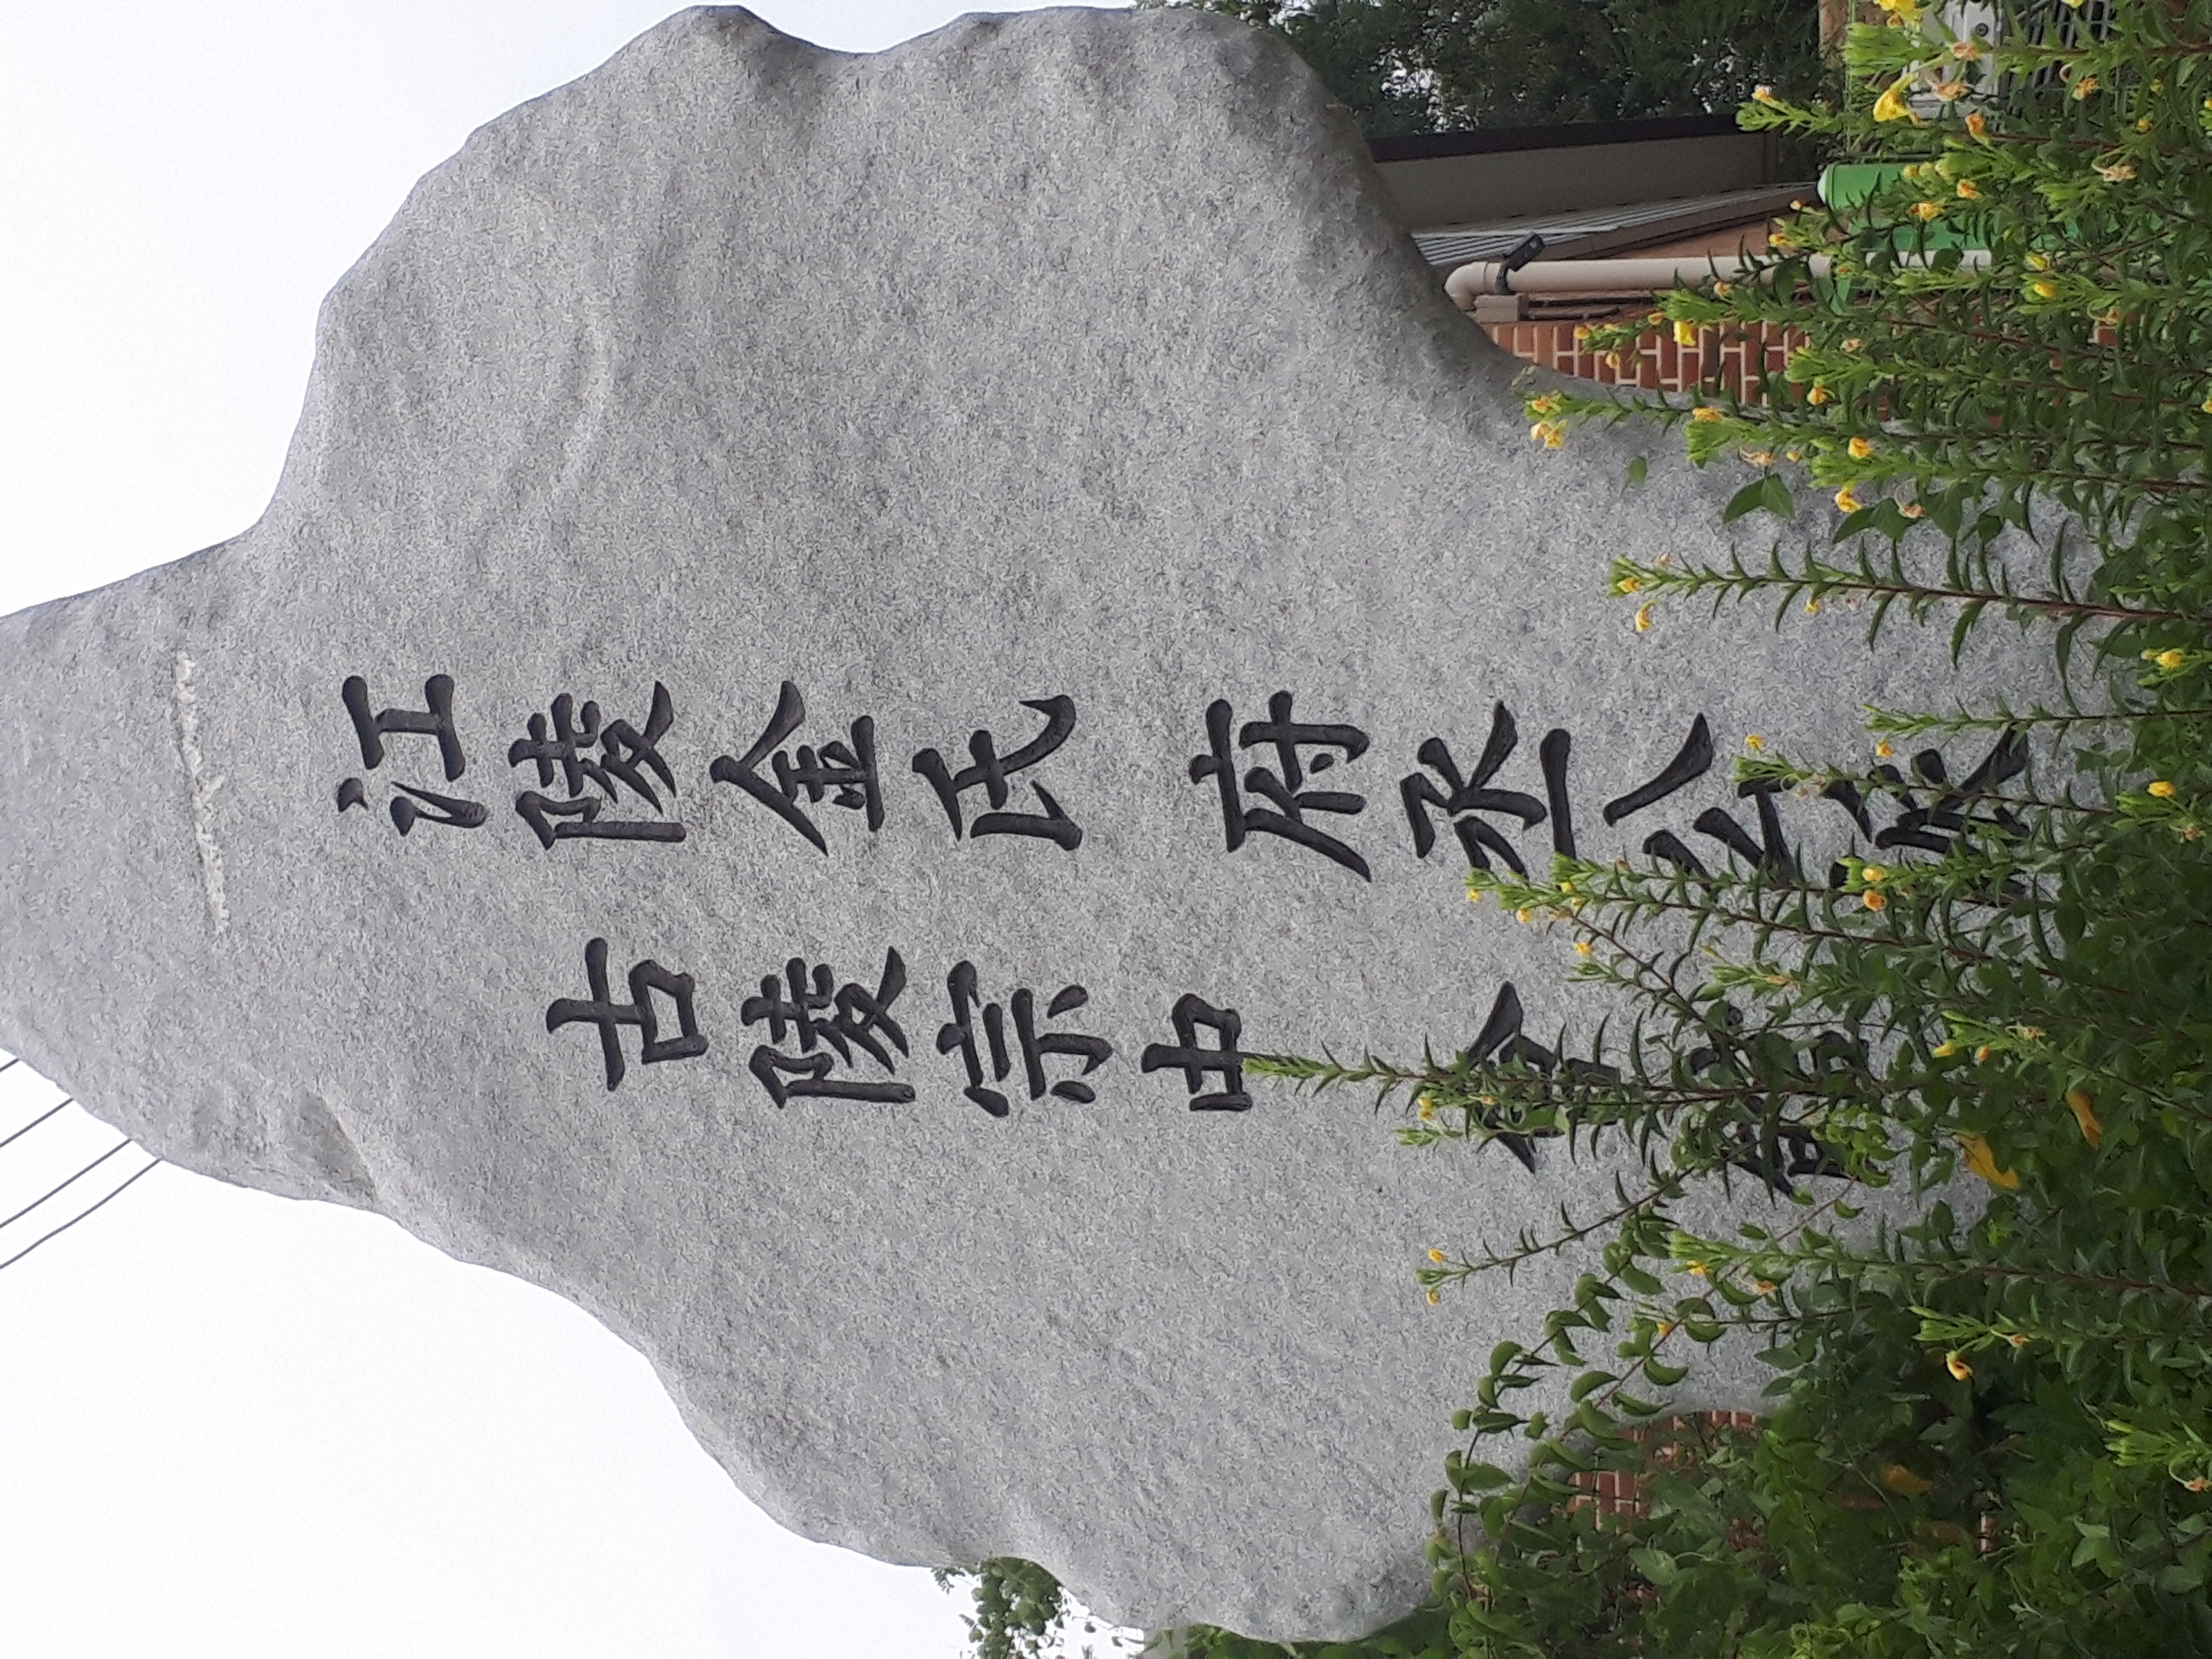 江陵金氏 府丞公派
古陵宗中